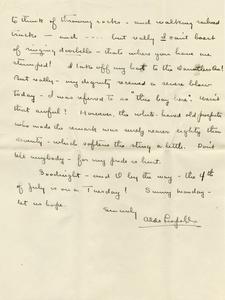 to think of throwing rocks - and walking railroad
tracks - and .... but really I don't boast
of ringing doorbells - thats where you have me
stumped! I take off my hat to the
But really - my dignity received a severe blow
today - I was referred to as "this boy here". Isn't
that awful? However, the white-haired old prophet
who made the remark was surely nearer eighty than
seventy - which softens the sting a little. Don't
tell anybody - for my pride is hurt.
Goodnight - and O by the way - the 4th
of July is on a Tuesday! Sunny Monday -
let us hope.
Sincerely